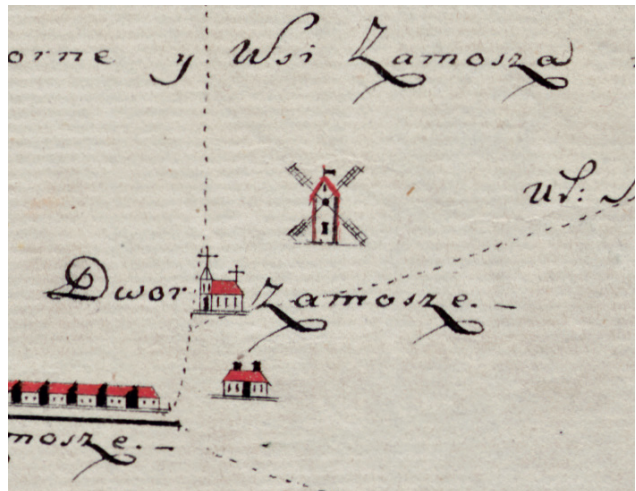 orne y Wsi Zamosza
Ur:
Dwor Zamosze.–
mosze.–